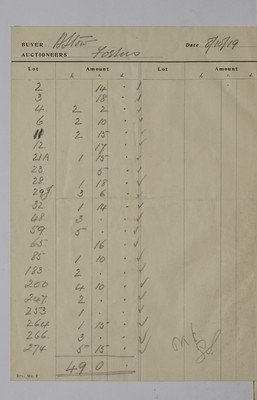 BUYER Alstow Date 8/10/19
AUCTIONEERS Fosters
Lot Amount Lot Amount
£ s d £ s d
2 14 -
3 18 -
4 2 2 -
6 2 10 -
11 2 15 -
12 17 -
21A 1 15 -
23 5 -
28 1 18 -
29 3 6 -
32 1 14 -
48 3 - -
59 5 - -
65 16 -
85 1 10 -
183 2 - -
200 4 10 -
247 2 - -
253 1 - -
264 1 15 -
266 3 - -
274 5 15 -
49 0 -